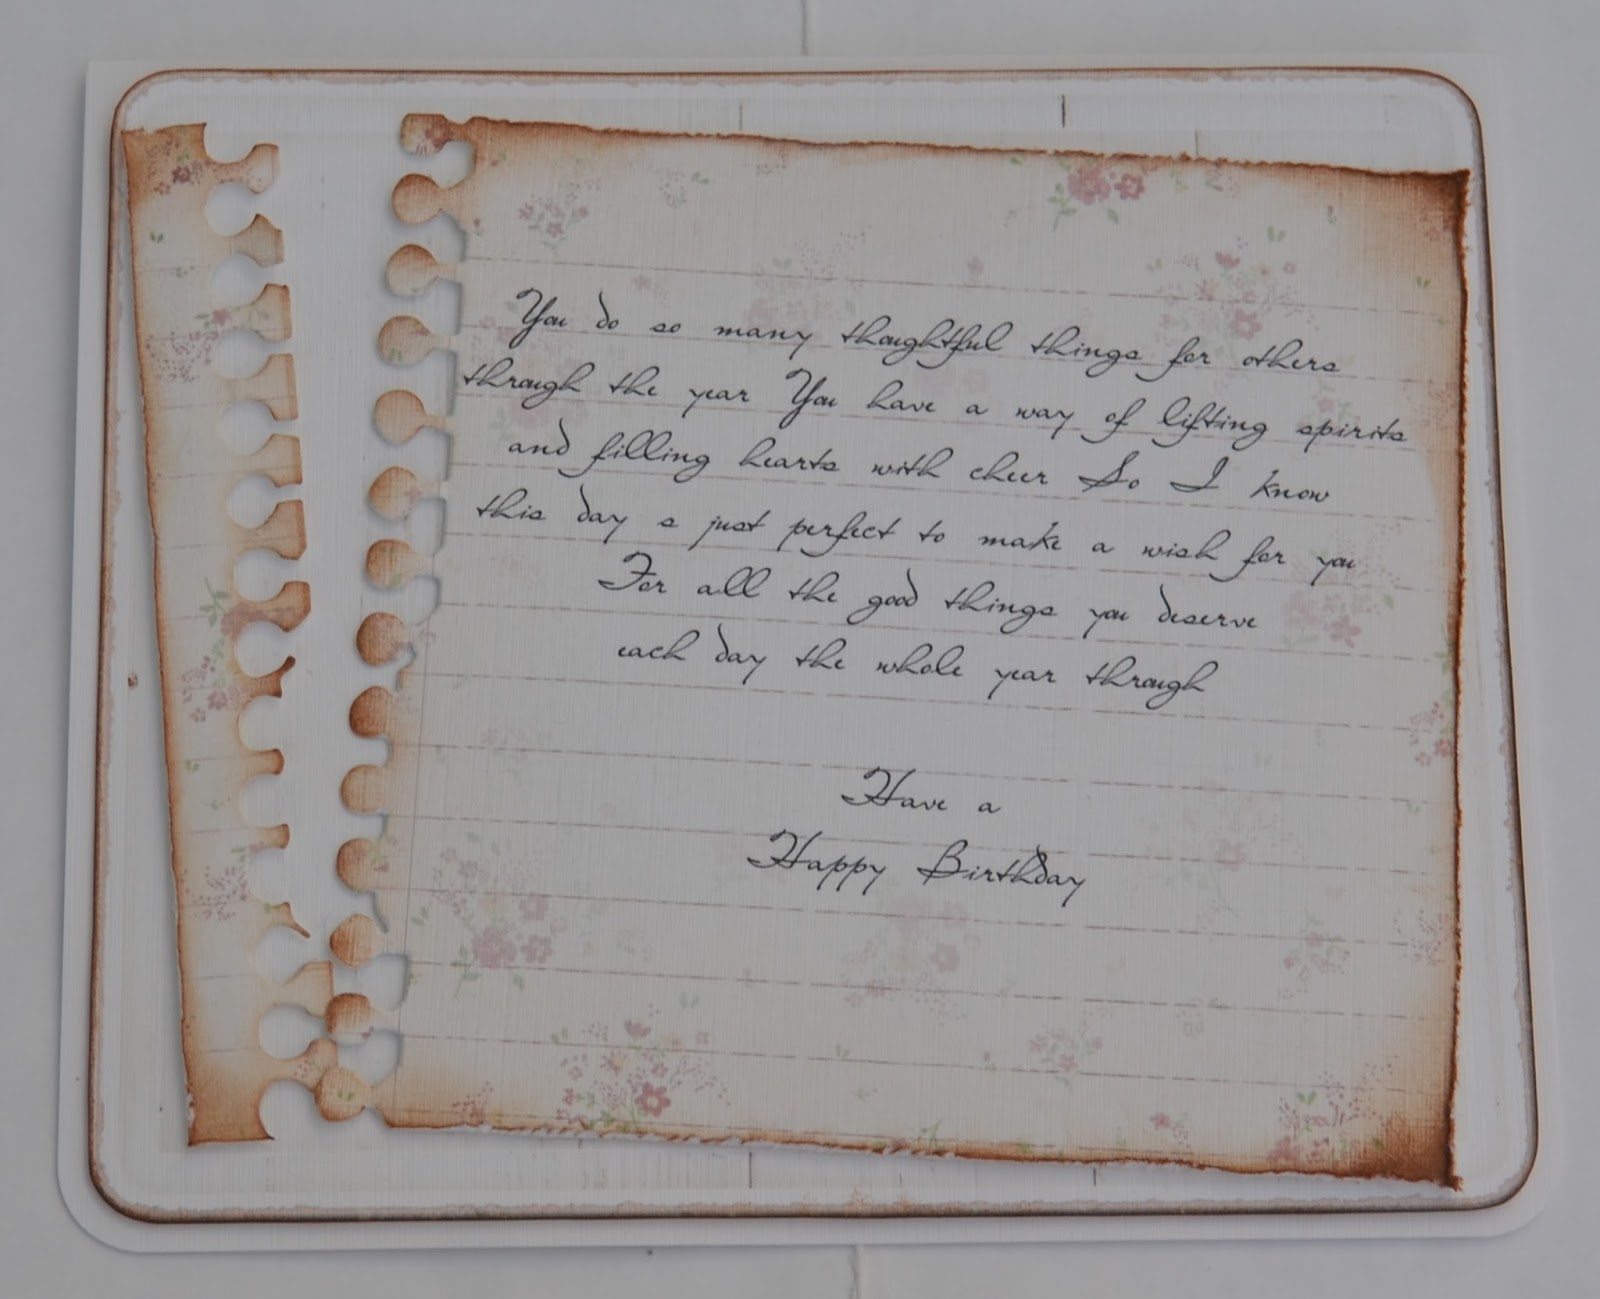 You do so many thoughtful things for others
through the year You have a way of lifting spirits
and filling hearts with cheer So I know
this day s just perfect to make a wish for you
For all the good things you deserve
each day the whole year through
Have a
Happy Birthday